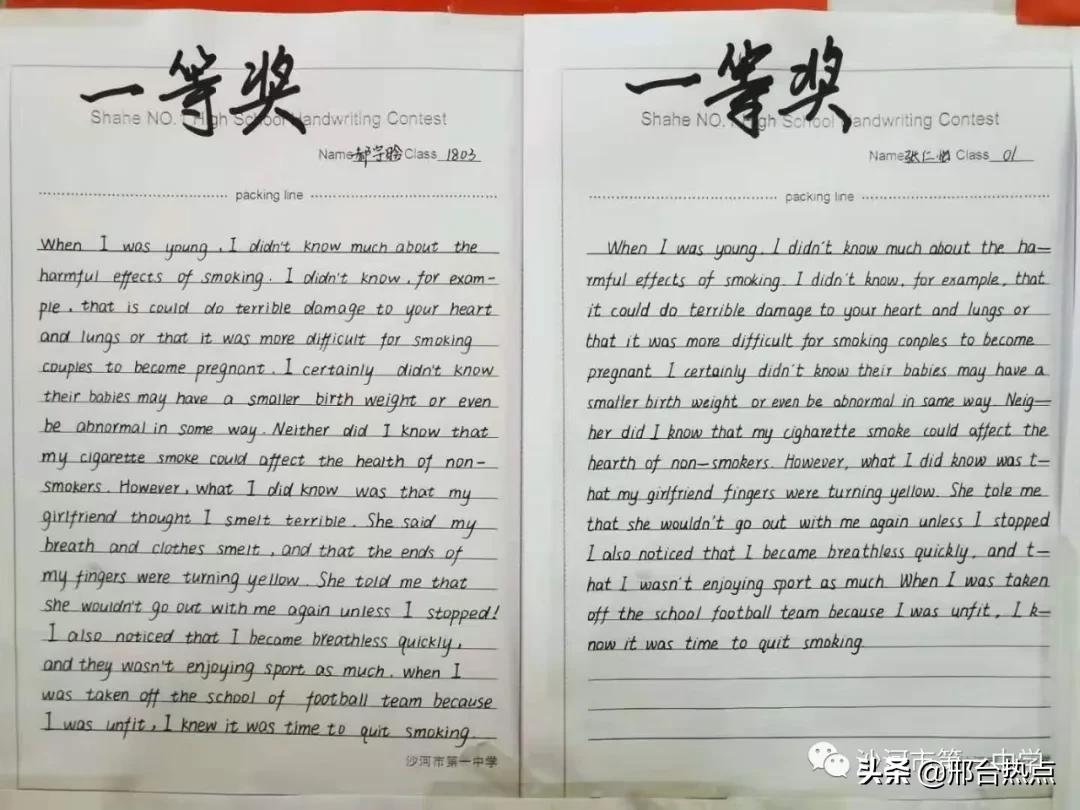 一等奖
Shahe NO.1 High School Handwriting Contest
Name 郝宇晗 Class 1803
packing line
When I was young, I didn't know much about the
harmful effects of smoking. I didn't know, for exam-
ple, that is could do terrible damage to your heart
and lungs or that it was more difficult for smoking
couples to become pregnant. I certainly didn't know
their babies may have a smaller birth weight or even
be abnormal in some way. Neither did I know that
my cigarette smoke could affect the health of non-
smokers. However, what I did know was that my
girlfriend thought I smelt terrible. She said my
breath and clothes smelt, and that the ends of
my fingers were turning yellow. She told me that
she wouldn't go out with me again unless I stopped!
I also noticed that I became breathless quickly,
and they wasn't enjoying sport as much. when I
was taken off the school of football team because
I was unfit, I knew it was time to quit smoking.
沙河市第一中学
一等奖
Shahe NO.1 High School Handwriting Contest
Name 张仁 Class 01
packing line
When I was young, I didn't know much about the ha-
rmful effects of smoking. I didn't know, for example, that
it could do terrible damage to your heart and lungs or
that it was more difficult for smoking conples to become
pregnant I certainly didn't know their babies may have a
smaller birth weight or even be abnormal in same way. Neig-
her did I know that my cigharette smoke could affect the
hearth of non-smokers. However, what I did know was t-
hat my girlfriend fingers were turning yellow. She tole me
that she wouldn't go out with me again unless I stopped
I also noticed that I became breathless quickly, and t-
hat I wasn't enjoying sport as much. When I was taken
off the school football team because I was unfit, I k-
now it was time to quit smoking.
沙河市第一中学
头条 @邢台热点